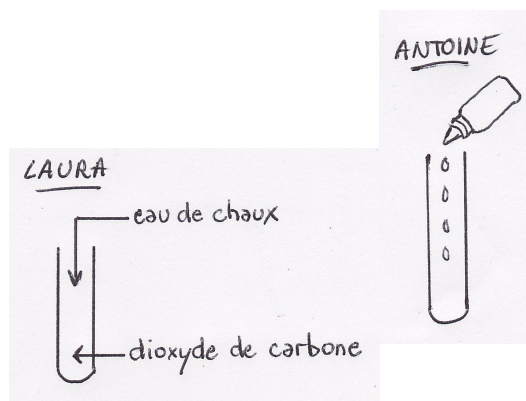 ANTOINE
LAURA
eau de chaux
dioxyde de carbone